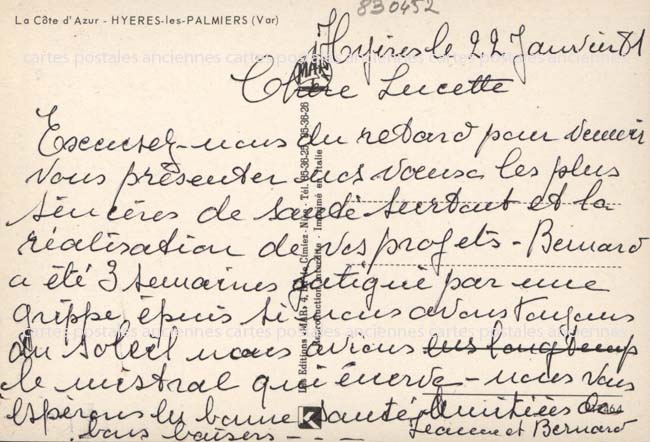 830452
La Côte d'Azur - HYERES-les-PALMIERS (Var)
Hyères le 22 Janvier 81
Chère Lucette
Excusez-nous du retard pour venir
vous présenter nos voeux les plus
sincères de santé surtout et la
réalisation de vos projets - Bernard
a été 3 semaines fatigué par une
grippe, épuis si nous avons toujours
du soleil nous avions
le mistral qui énerve - nous vous
espérons en bonne santé
bons baisers - - - Jeanne et Bernard
MAR
Les Editions "MAR" Cimiez - Nice - Tél.
Reproduction interdite - Imprimé en Italie
K
cartes postales anciennes cartes postales anciennes cartes postales anciennes
cartes postales anciennes cartes postales anciennes cartes postales anciennes